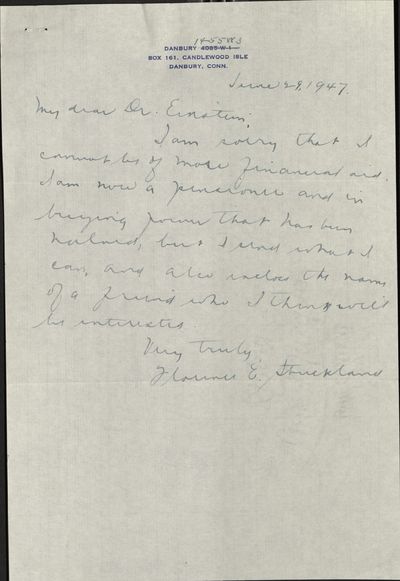 1455W3
DANBURY 4085-W-1
BOX 161, CANDLEWOOD ISLE
DANBURY, CONN.
June 29, 1947.
My dear Dr. Einstein;
I am sorry that I
cannot be of more financial aid.
I am now a pensioner and in
buying power that has been
halved, but I send what I
can, and also enclose the name
of a friend who I think will
be interested.
Very truly,
Florence E. Strickland